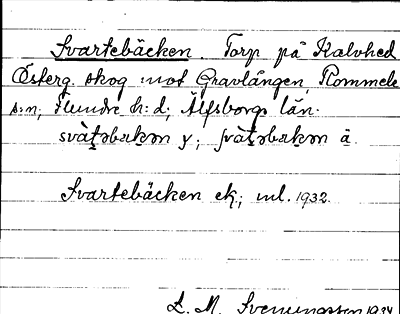 Svartebäcken. Torp på Kalvhed
Österg. skog mot Gravlången, Rommele
s:n, Flundre h:d, Älfsborgs län.
svàt̩əbɛkən y; svàt̩əbɛkən ä.
Svartebäcken ek; ml. 1932.
L. M. Svenungsson 1934